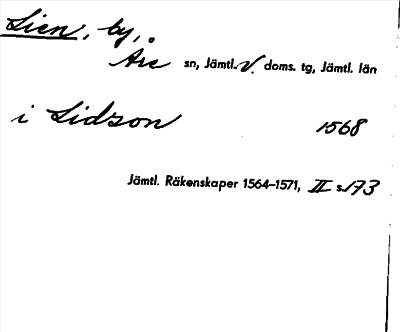 Lien, by,
Åre sn, Jämtl. V. doms. tg, Jämtl. län
i Lidson 1568
Jämtl. Räkenskaper 1564–1571, II s. 173